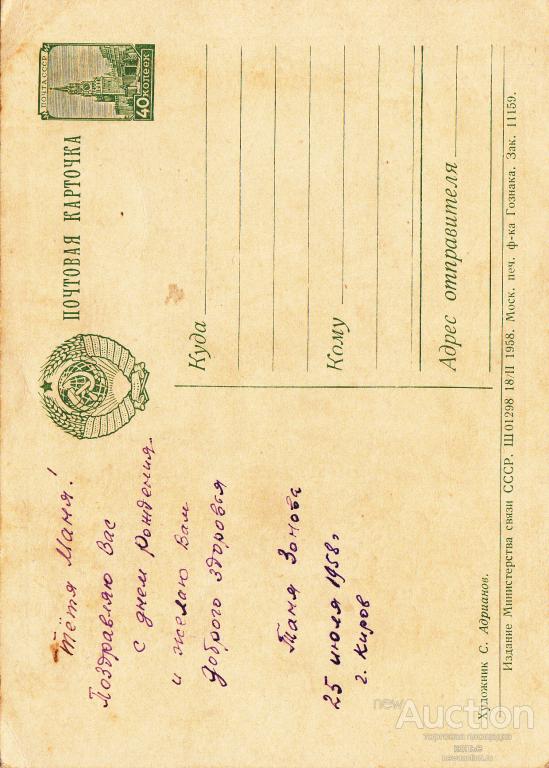 Тётя Маня!
Поздравляю Вас
с днем Рождения.
и желаю Вам
доброго здоровья
Таня Зонова
25 июля 1958 г
г. Киров
ПОЧТОВАЯ КАРТОЧКА
ПОЧТА СССР
40 КОПЕЕК
Куда
Кому
Адрес отправителя
Художник С. Адрианов.
Издание Министерства связи СССР. Ш 01298 18/II 1958. Моск. печ. ф-ка Гознака. Зак. 11159.
newAuction
торговая площадка
newauction.ru